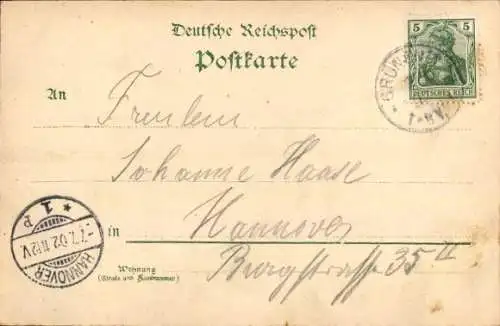 Deutsche Reichspost
Postkarte
5 5
DEUTSCHES REICH
GRÜN
7-8V.
An
Freulein
Johanne Haase
in Hannover
Burgstrasse 35 II
Wohnung
(Straße und Hausnummer)
HANNOVER
7.7.02.11-12V.
* 1 p